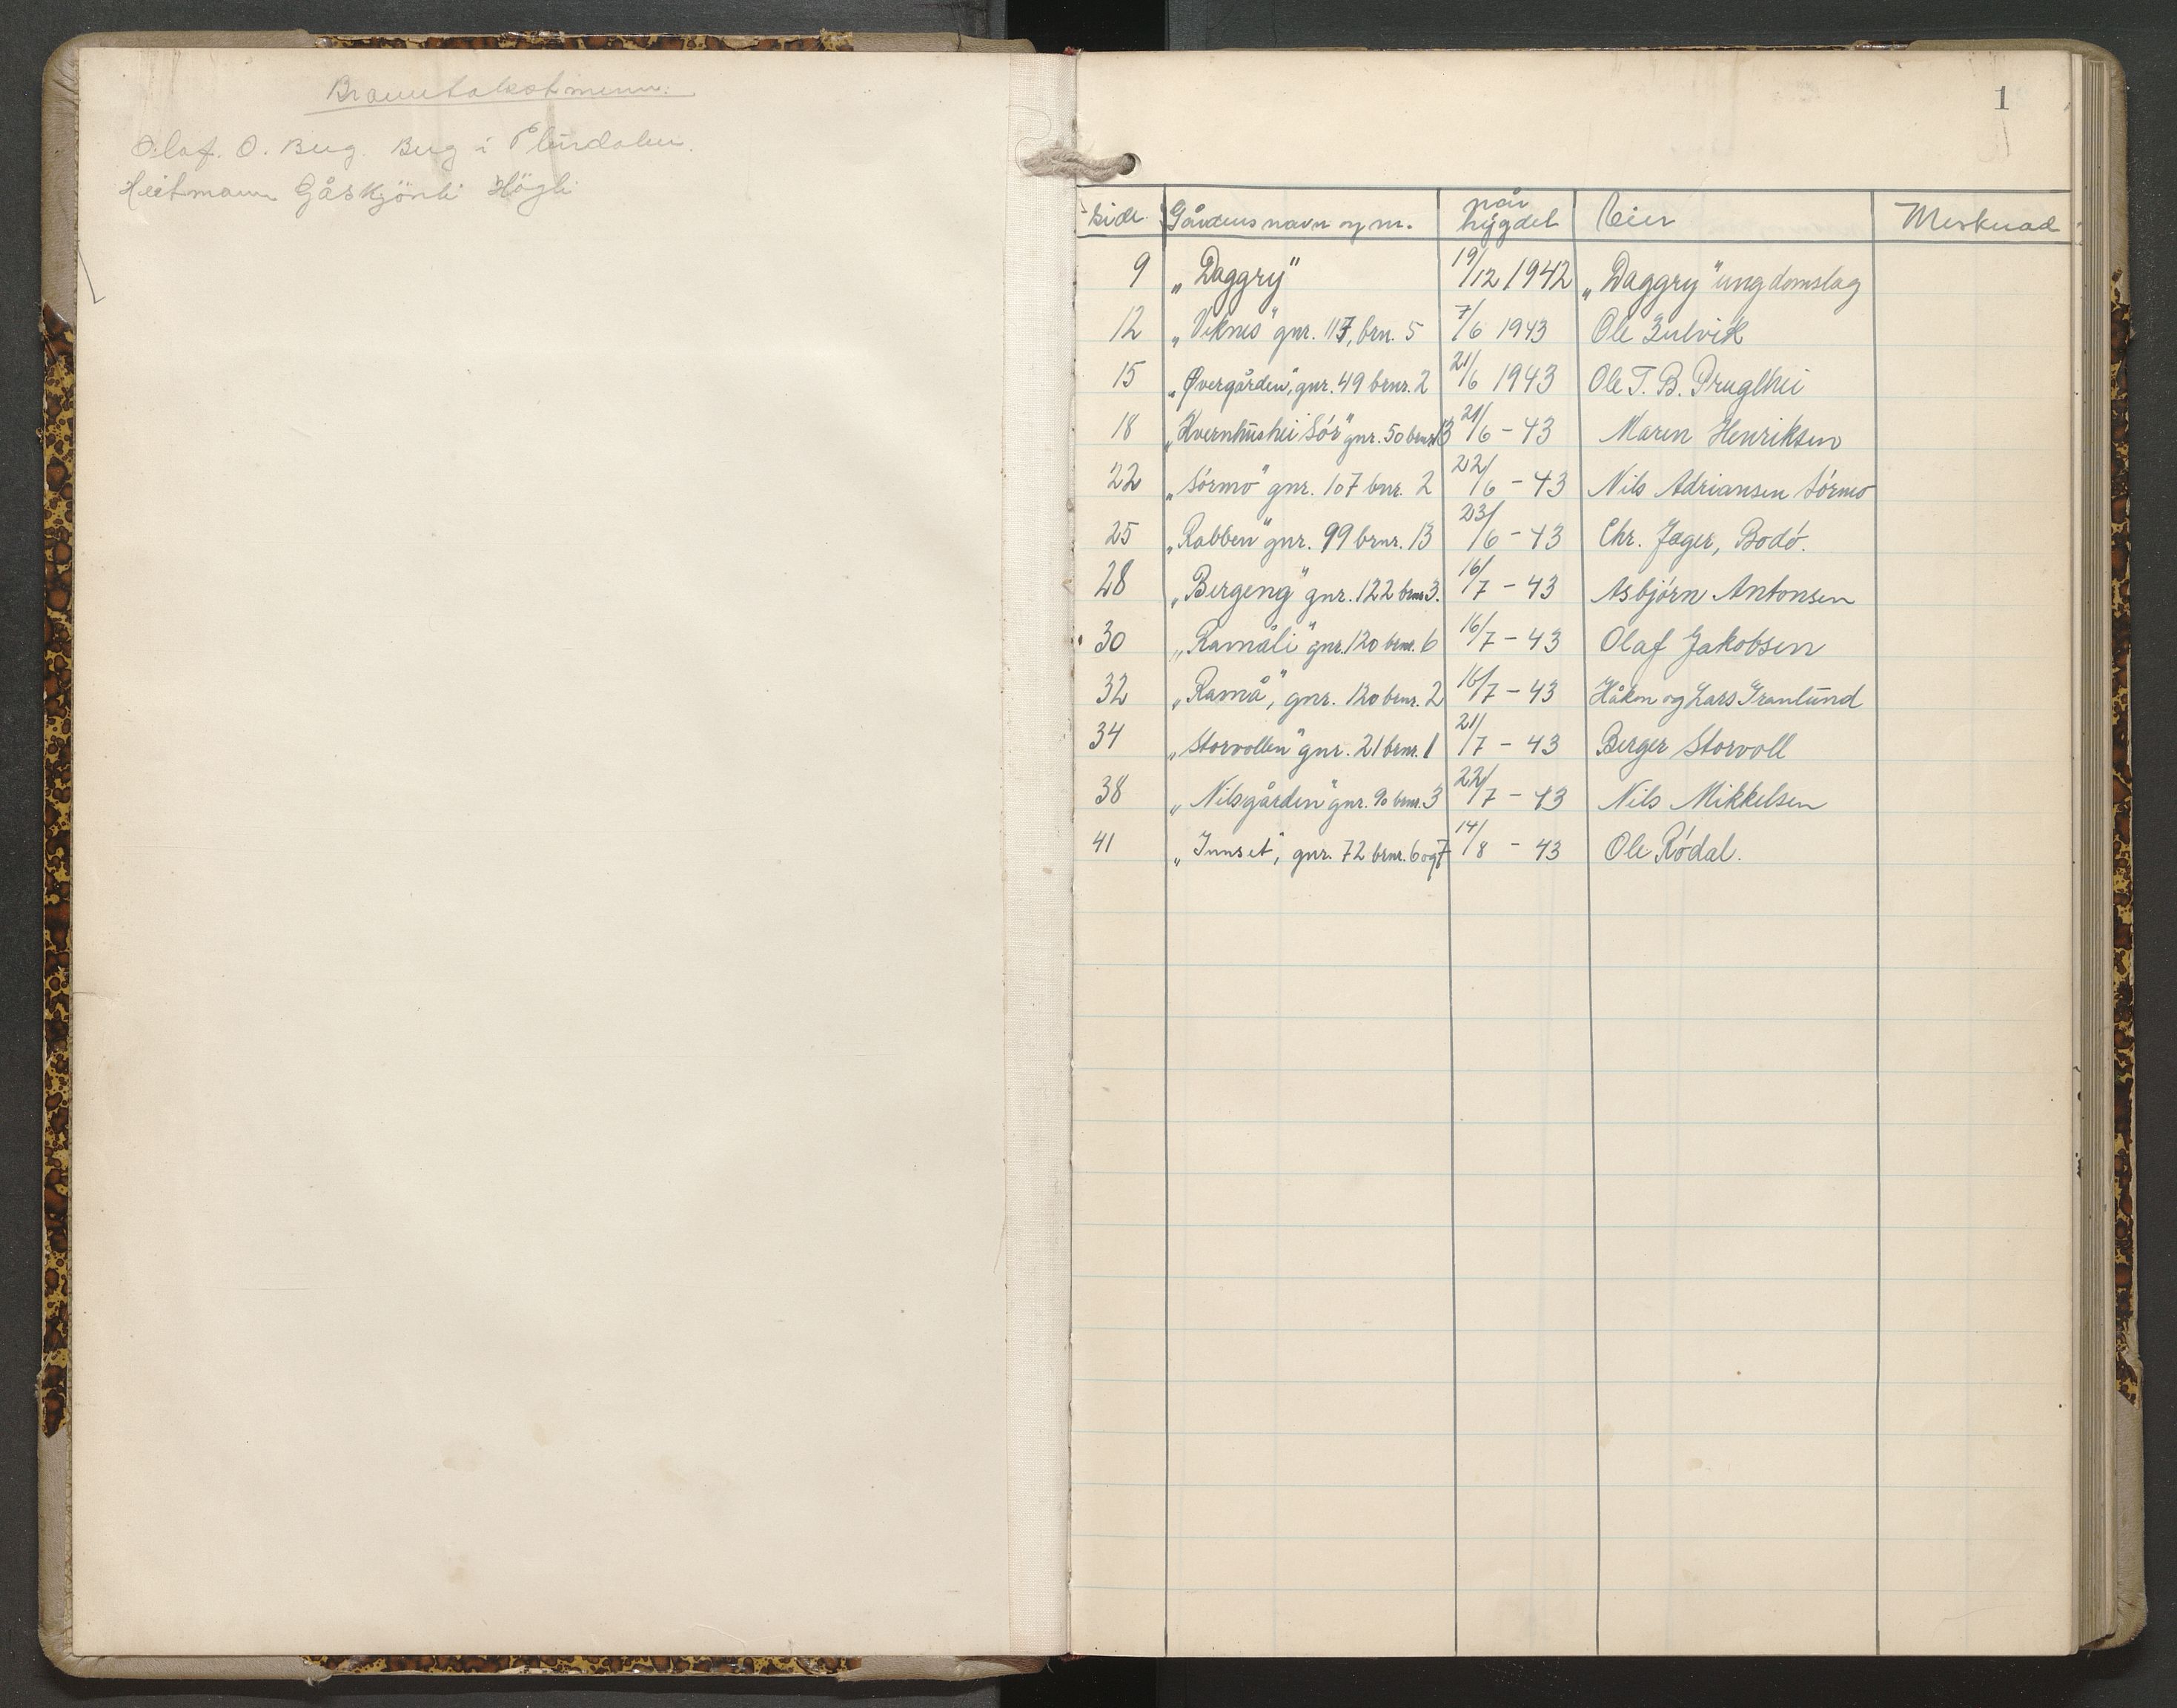 Branntakstmenn:
Olaf. O. Berg. Berg i Plurdalen.
Heitmann Gåskjönli Högli
1
Side. Gårdens navn og nr. når bygdet Eier Merknad
9 „Daggry" 19/12 1942 „Daggry" ungdomslag
12 „Viknes" gnr. 117, brn. 5 7/6 1943 Ole Zulvik
15 „Øvergården", gnr. 49 brnr. 2 21/6 1943 Ole T. B. Pruglhei
18 „Kvernhushei Sór" gnr. 50 brnr 13 21/6 - 43 Maren Henriksen
22 „Sórmo" gnr. 107 bnr. 2 22/6 - 43 Nils Adriansen Sórmo
25 „Rabben" gnr. 99 brnr. 13 23/6 - 43 Chr. Jæger, Bodó.
28 „Bergeng" gnr. 122 brnr 3. 16/7 - 43 Asbjórn Antonsen
30 „Ramåli" gnr. 120 brnr. 6 16/7 - 43 Olaf Jakobsen
32 „Ramå", gnr. 120 brnr. 2 16/7 - 43 Håkon og Lars Granlund
34 „Storvollen" gnr. 21 brnr. 1 21/7 - 43 Berger Storvoll
38 „Nilsgården" gnr. 90 brnr. 3 22/7 - 43 Nils Mikkelsen
41 „Innset", gnr. 72 brnr. 6 og 7 14/8 - 43 Ole Ródal.